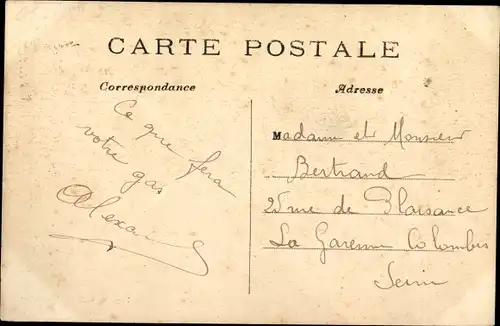 CARTE POSTALE
Correspondance
Adresse
Ce que fera
votre gas
Madame et Monsieur
Bertrand
25 rue de Plaisance
La Garenne Colombes
Seine